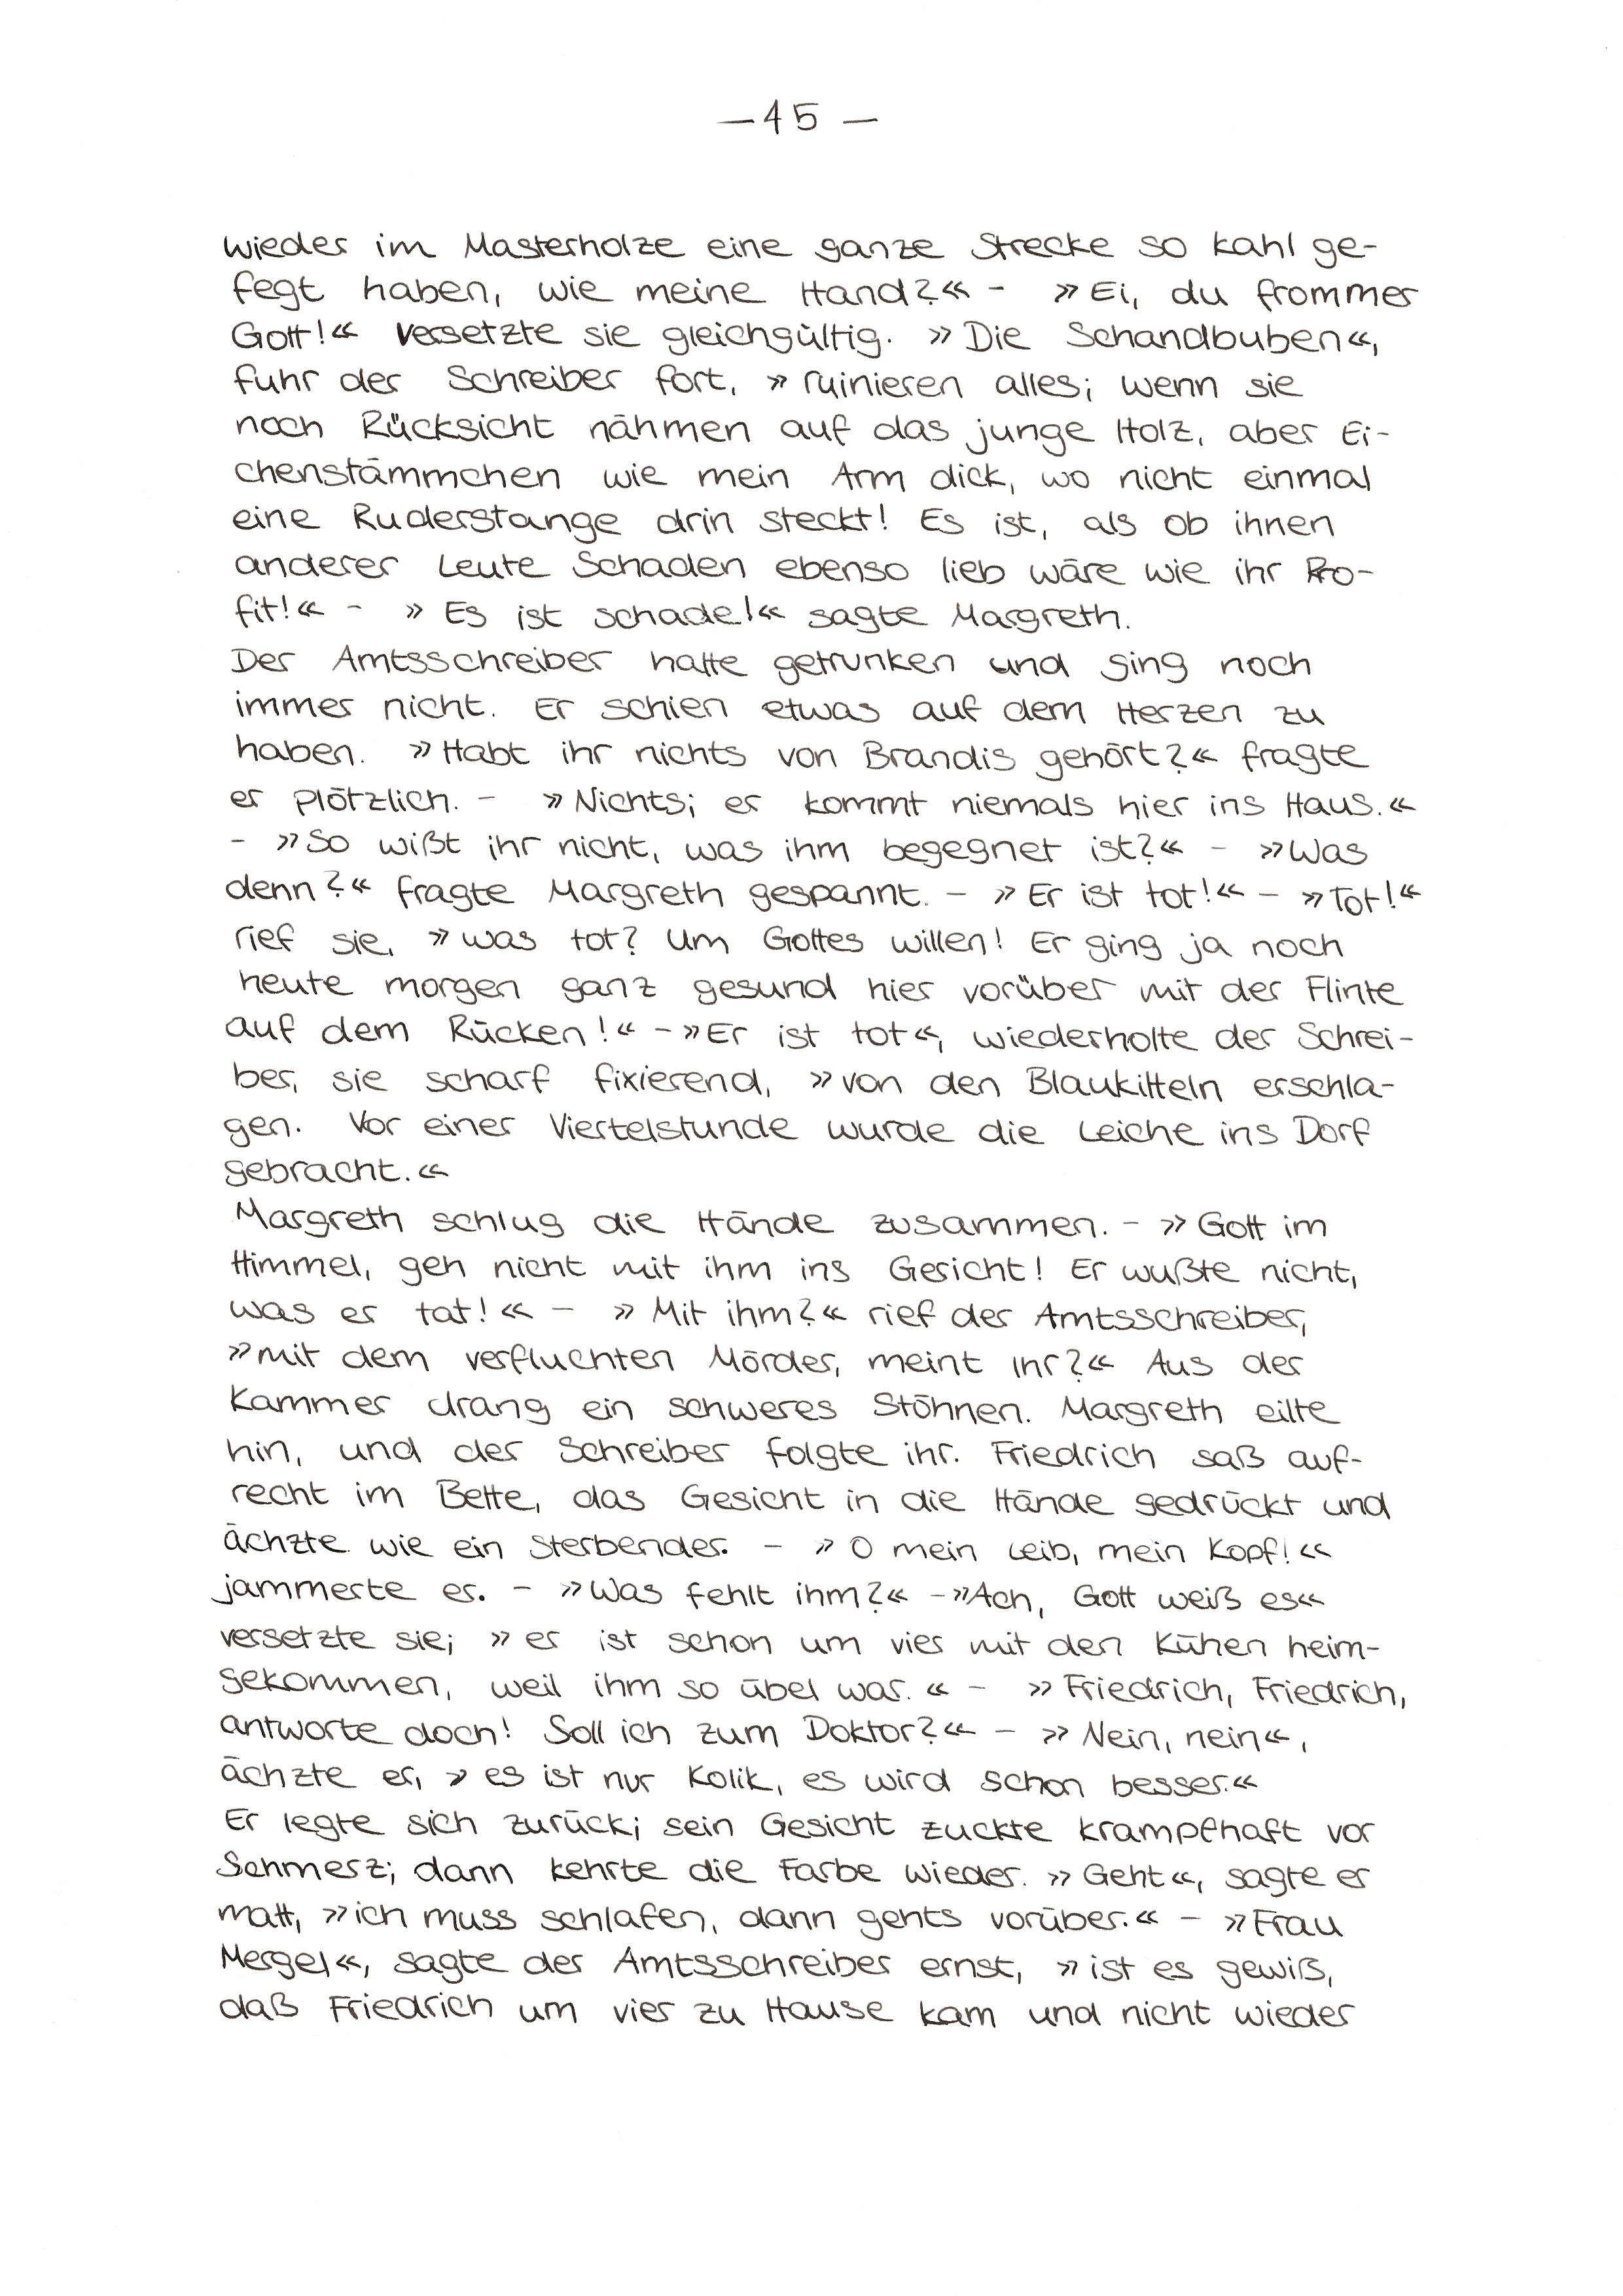 —45—
wieder im Masterholze eine ganze Strecke so kahl ge-
fegt haben, wie meine Hand?« - »Ei, du frommer
Gott!« versetzte sie gleichgültig. »Die Schandbuben«,
fuhr der Schreiber fort, »ruinieren alles; wenn sie
noch Rücksicht nähmen auf das junge Holz, aber Ei-
chenstämmchen wie mein Arm dick, wo nicht einmal
eine Ruderstange drin steckt! Es ist, als ob ihnen
anderer Leute Schaden ebenso lieb wäre wie ihr Pro-
fit!« - »Es ist schade!« sagte Margreth.
Der Amtsschreiber hatte getrunken und ging noch
immer nicht. Er schien etwas auf dem Herzen zu
haben. »Habt ihr nichts von Brandis gehört?« fragte
er plötzlich. - »Nichts; er kommt niemals hier ins Haus.«
- »So wißt ihr nicht, was ihm begegnet ist?« - »Was
denn?« fragte Margreth gespannt. - »Er ist tot!« - »Tot!«
rief sie, »was tot? Um Gottes willen! Er ging ja noch
heute morgen ganz gesund hier vorüber mit der Flinte
auf dem Rücken!« - »Er ist tot«, wiederholte der Schrei-
ber, sie scharf fixierend, »von den Blaukitteln erschla-
gen. Vor einer Viertelstunde wurde die Leiche ins Dorf
gebracht.«
Margreth schlug die Hände zusammen. - »Gott im
Himmel, geh nicht mit ihm ins Gericht! Er wußte nicht,
was er tat!« - »Mit ihm?« rief der Amtsschreiber,
»mit dem verfluchten Mörder, meint ihr?« Aus der
Kammer drang ein schweres Stöhnen. Margreth eilte
hin, und der Schreiber folgte ihr. Friedrich saß auf-
recht im Bette, das Gesicht in die Hände gedrückt und
ächzte wie ein Sterbender. - »O mein Leib, mein Kopf!«
jammerte er. - »Was fehlt ihm?« - »Ach, Gott weiß es«
versetzte sie; »er ist schon um vier mit den Kühen heim-
gekommen, weil ihm so übel war.« - »Friedrich, Friedrich,
antworte doch! Soll ich zum Doktor?« - »Nein, nein«,
ächzte er, »es ist nur Kolik, es wird schon besser.«
Er legte sich zurück; sein Gesicht zuckte krampfhaft vor
Schmerz; dann kehrte die Farbe wieder. »Geht«, sagte er
matt, »ich muss schlafen, dann gehts vorüber.« - »Frau
Mergel«, sagte der Amtsschreiber ernst, »ist es gewiß,
daß Friedrich um vier zu Hause kam und nicht wieder